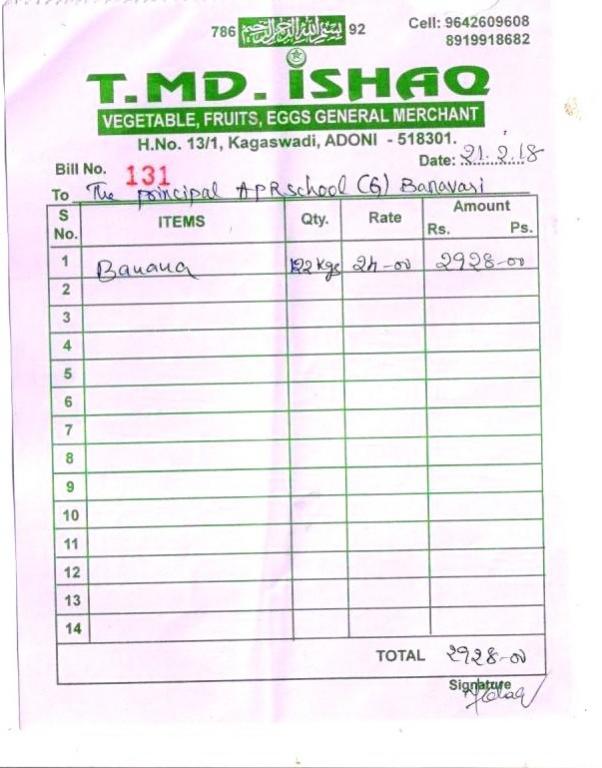 786 بسم الله الرحمن الرحيم 92
Cell: 9642609608
8919918682
T.MD. ISHAQ
VEGETABLE, FRUITS, EGGS GENERAL MERCHANT
H.No. 13/1, Kagaswadi, ADONI - 518301.
Bill No. 131 Date: 21.2.18
To The principal APRschool (G) Banavasi
S No. ITEMS Qty. Rate Amount Rs. Ps.
1 Banana 122 kgs 24-00 2928-00
2
3
4
5
6
7
8
9
10
11
12
13
14
TOTAL 2928-00
Signature